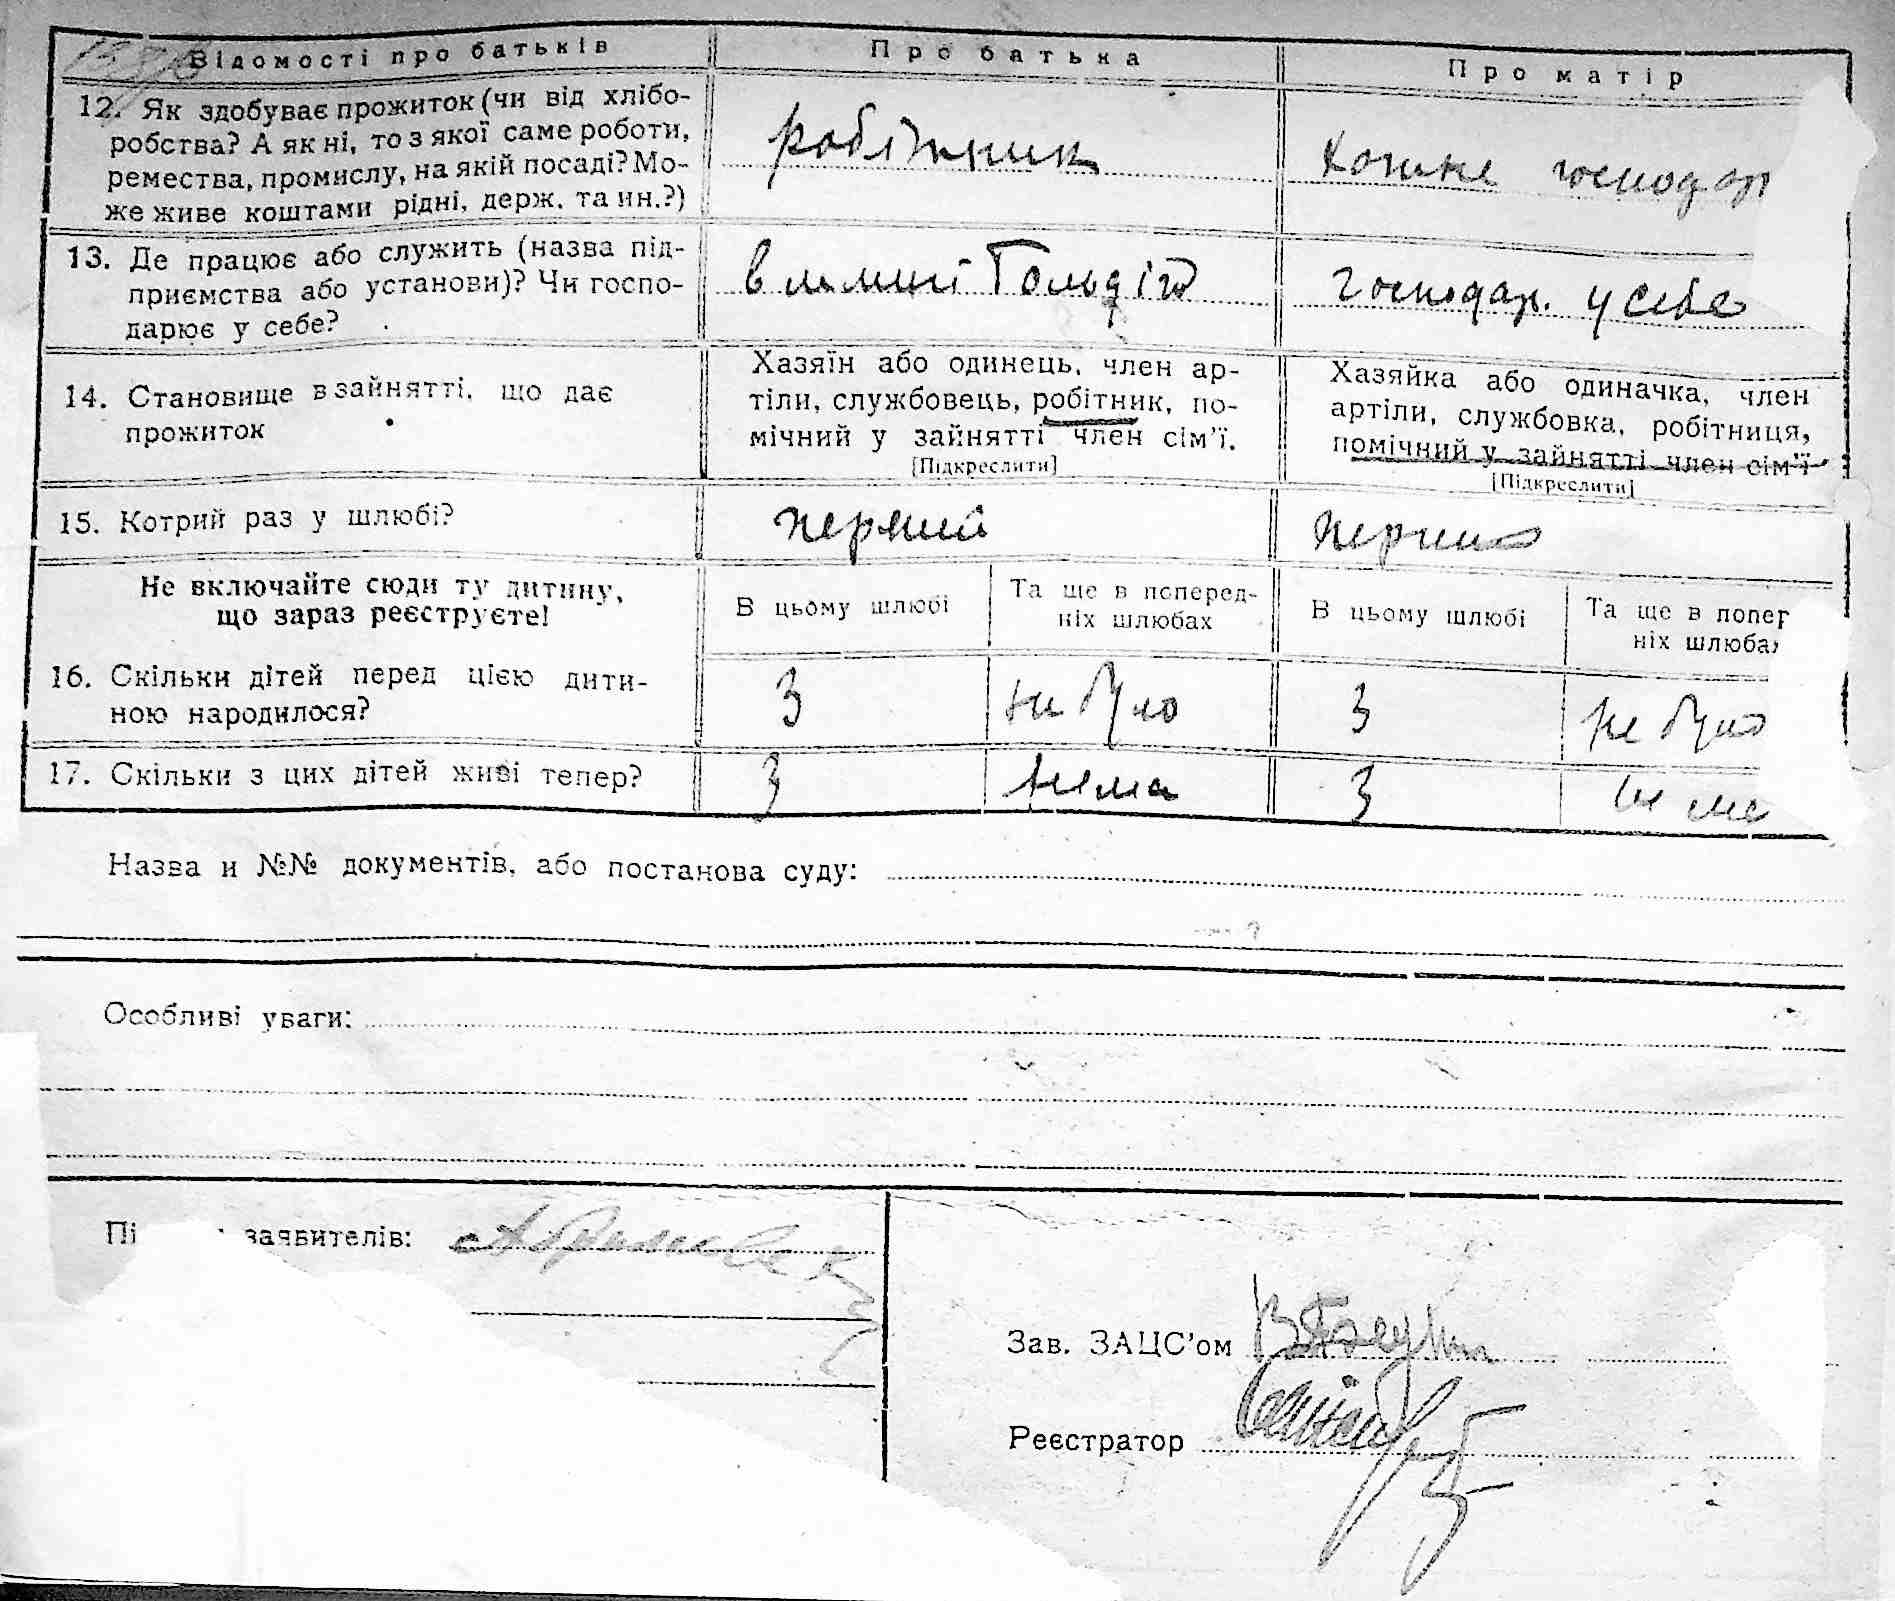 Відомості про батьків
Про батька
Про матір
12. Як здобуває прожиток (чи від хлібо-
робства? А як ні, то з якої саме роботи,
ремества, промислу, на якій посаді? Мо-
же живе коштами рідні, держ. та ин.?)
робітник
господар
13. Де працює або служить (назва під-
приємства або установи)? Чи госпо-
дарює у себе?
в
господар. у себе
14. Становище в зайнятті, що дає
прожиток
Хазяїн або одинець, член ар-
тіли, службовець, робітник, по-
мічний у зайнятті член сім'ї.
[Підкреслити]
Хазяйка або одиначка, член
артіли, службовка, робітниця,
помічний у зайнятті член сім'ї
[Підкреслити]
15. Котрий раз у шлюбі?
перший
перший
Не включайте сюди ту дитину,
що зараз реєструєте!
В цьому шлюбі
Та ще в поперед-
ніх шлюбах
В цьому шлюбі
Та ще в попер
ніх шлюбах
16. Скільки дітей перед цією дити-
ною народилося?
3
не було
3
не було
17. Скільки з цих дітей живі тепер?
3
нема
3
нема
Назва и №№ документів, або постанова суду:
Особливі уваги:
Пі заявителів:
Зав. ЗАЦС'ом
Реєстратор